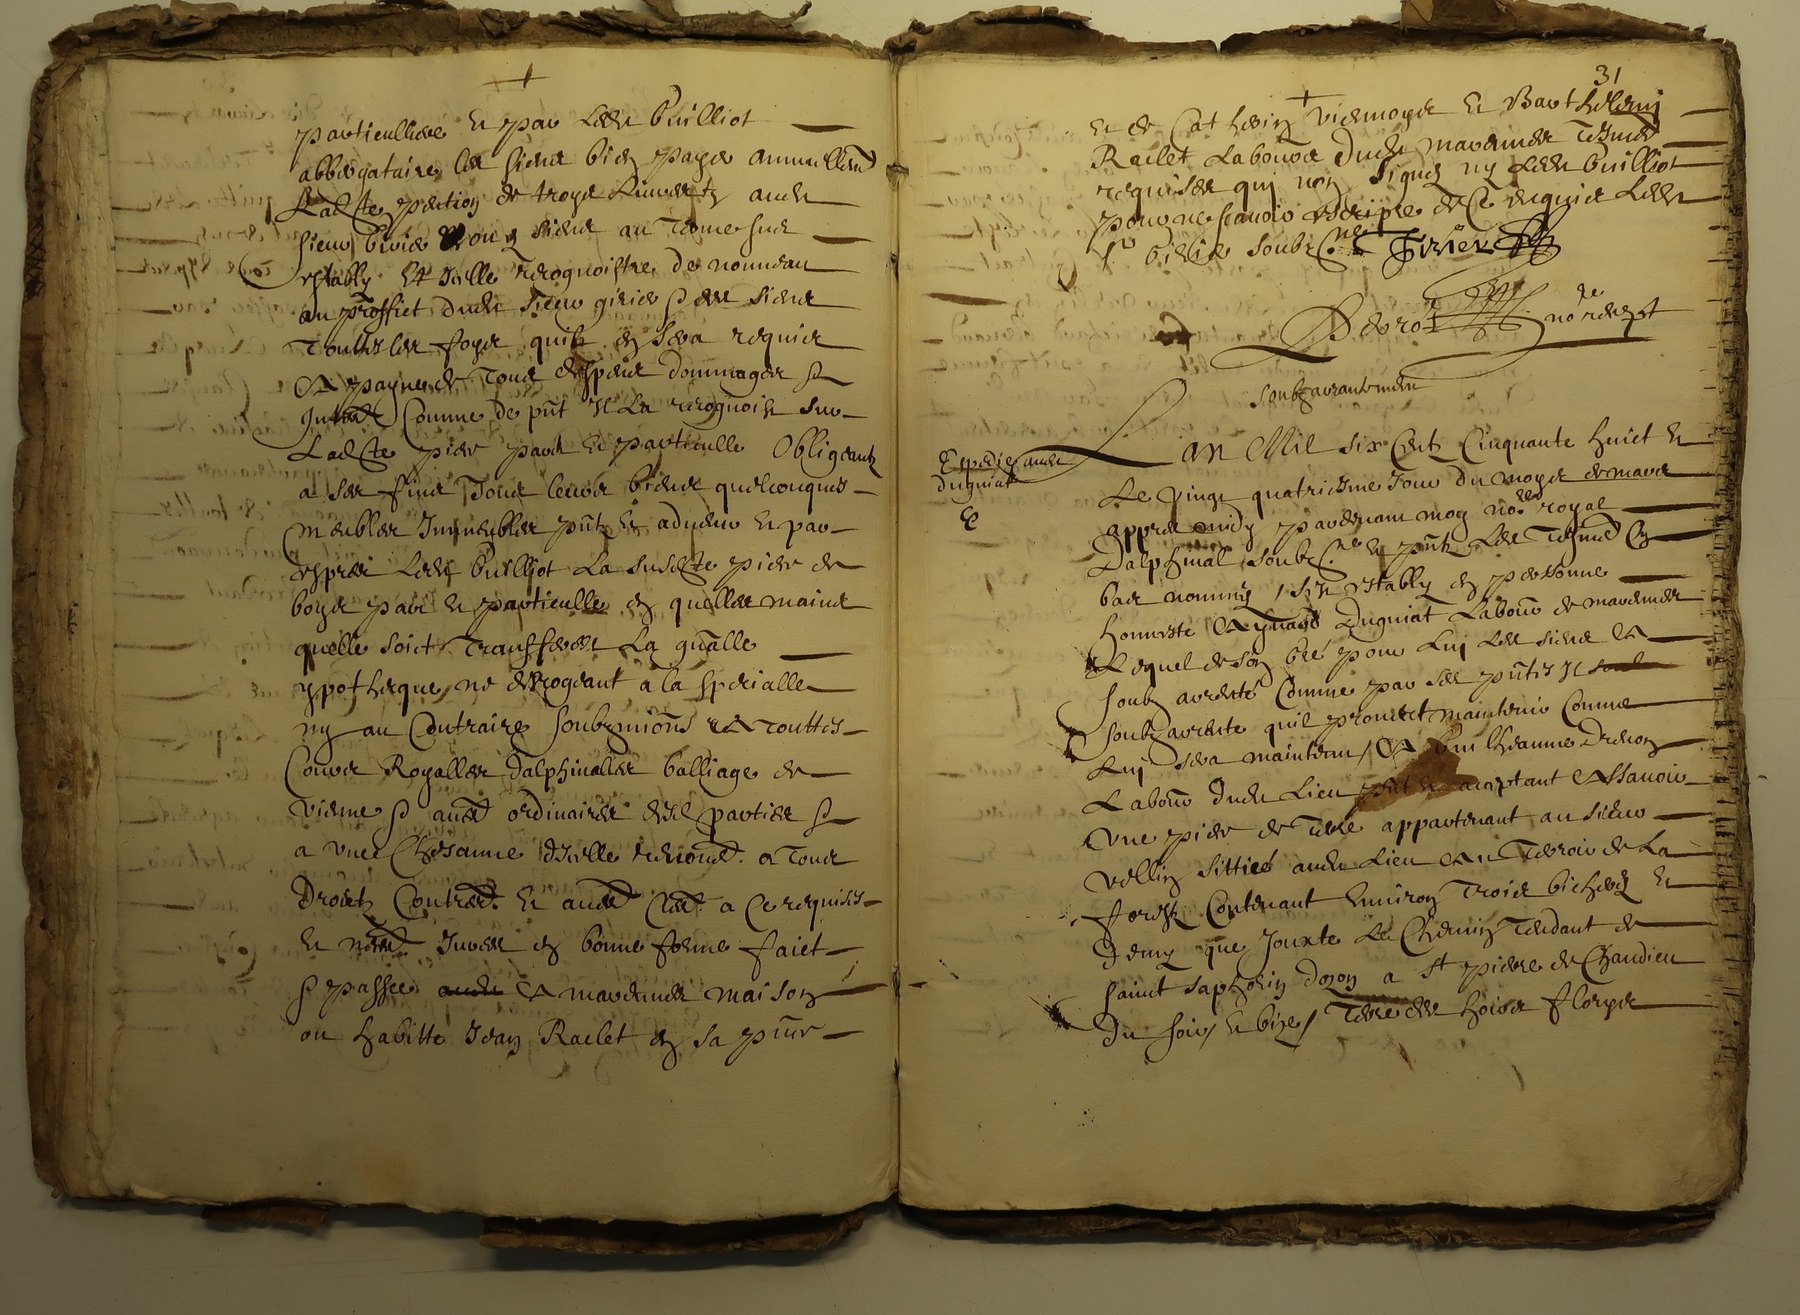 particulliere et par ledt Builliot
abbergataire les siens bien payer annuellemt
ladte pention de troys livres tz audt
sieur Girie ou siens au terme sus
estably Et icelle recognoistre de nouveau
au proffict dudt sieur girie P des siens
touttes les foys quilz en sera requier
A payne de tous despens dommages P
Interestz Comme de pnt Il la recognoist sur
ladte piece pard et particulle Obligeantz
a ses fins Tous leurs biens quelconques
meubles Immeubles pntz et advenir et par
expres ledt Builliot La susdte piece de
boys pard et particulle en quelles mains
quelle soict Transferee La gnalle
ypotheque ne derogeant a la specialle
ny au Contraire soubzmions A touttes
Cours Royalles dalphinalles balliage de
vienne P autres ordinaires desd parties P
a une Chesanne dicelle renoncd a tous
droictz Contrers et autres Clles a Ce requises
et necres Jurees en bonne forme faict
P passee A marennes maison
ou habitte Jean Raclet en sa pnce
31
et de Cathelin Viemoyer et Barthelemy
Raclet Laboures dudt marennes Tesmoingz
requises qui nont signes ny ledt Builliot
pour ne scavoir escripre de Ce enquier ledt
Sr Girie soubzne Girier
Derot nore rept
Soubzarrantement
Expedie audt
Duguiat
L an Mil six Centz Cinquante huict et
Le vingt quatriesme Jour du moys de mars
appres midy pardevant moy nore royal
Dalphinal soubzne et pntz Les Tesmoingz Cy
bas nommes sest estably en personne
honneste Aynard Duguiat Laboure de marennes
Lequel de son gre pour Luy Les siens A
soubz arrente Comme par ses pntes Il
soubzarrente quil promect maintenir Comme
Luy sera maintenu A Guilheaume Drevon
Laboure dudt Lieu pnt et aceptant Assavoir
une piece de Terre appartenant au sieur
vellin sittiee audt Lieu A Terroir de La
forest Contenant Environ Trois bicherees et
Demy que Jouxte Le Chemin Tendant de
saint saphorin dozon a St pierre de Chandieu
Du soir et bize Terre des hoirs florys